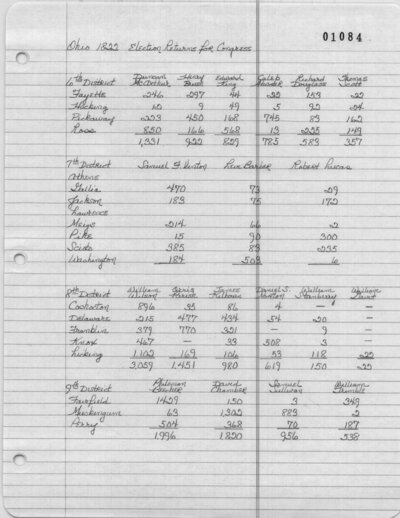 01084
Ohio 1822 Election Returns for Congress
6th District Duncan McArthur Henry Brush Edward King Caleb Richard Douglass Thomas Scott
Fayette 246 297 44 22 153 22
Hocking 12 9 49 5 92 24
Pickaway 223 450 168 745 83 162
Ross 850 166 568 13 255 149
1,331 922 829 785 583 357
7th District Samuel F. Vinton Levi Barber Robert Lucas
Athens
Gallia 470 73 29
Jackson 183 75 172
Lawrence
Meigs 214 66 2
Pike 15 90 300
Scioto 385 83 235
Washington 184 503 6
8th District William Wilson Joseph James Kilbourn Daniel S. Norton William Stanbery William
Coshocton 896 35 86 4 — —
Delaware 215 477 434 54 20 —
Franklin 379 770 321 — 9 —
Knox 467 — 33 508 3 —
Licking 1,102 169 106 53 118 22
3,059 1,451 980 619 150 22
9th District Philemon Beecher David Chambers Samuel Sullivan William Trimble
Fairfield 1429 150 3 349
Muskingum 63 1302 883 2
Perry 504 368 70 187
1996 1820 956 538